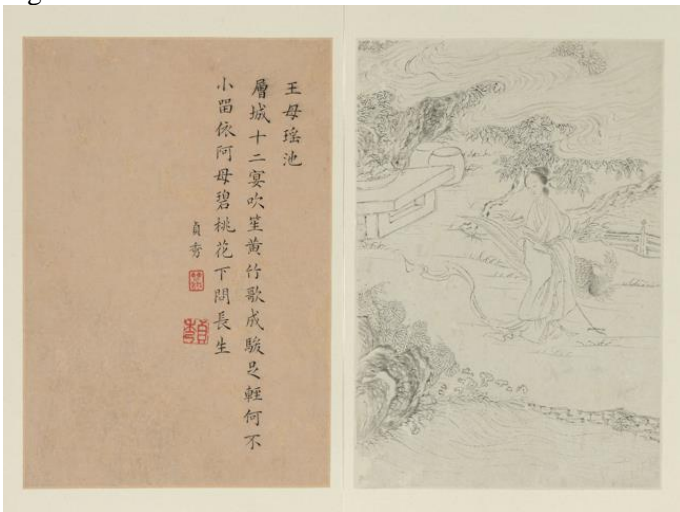 王母瑤池
層城十二宴吹笙黄竹歌成駿足輕何不
小畱依阿母碧桃花下問長生
貞秀
貞秀